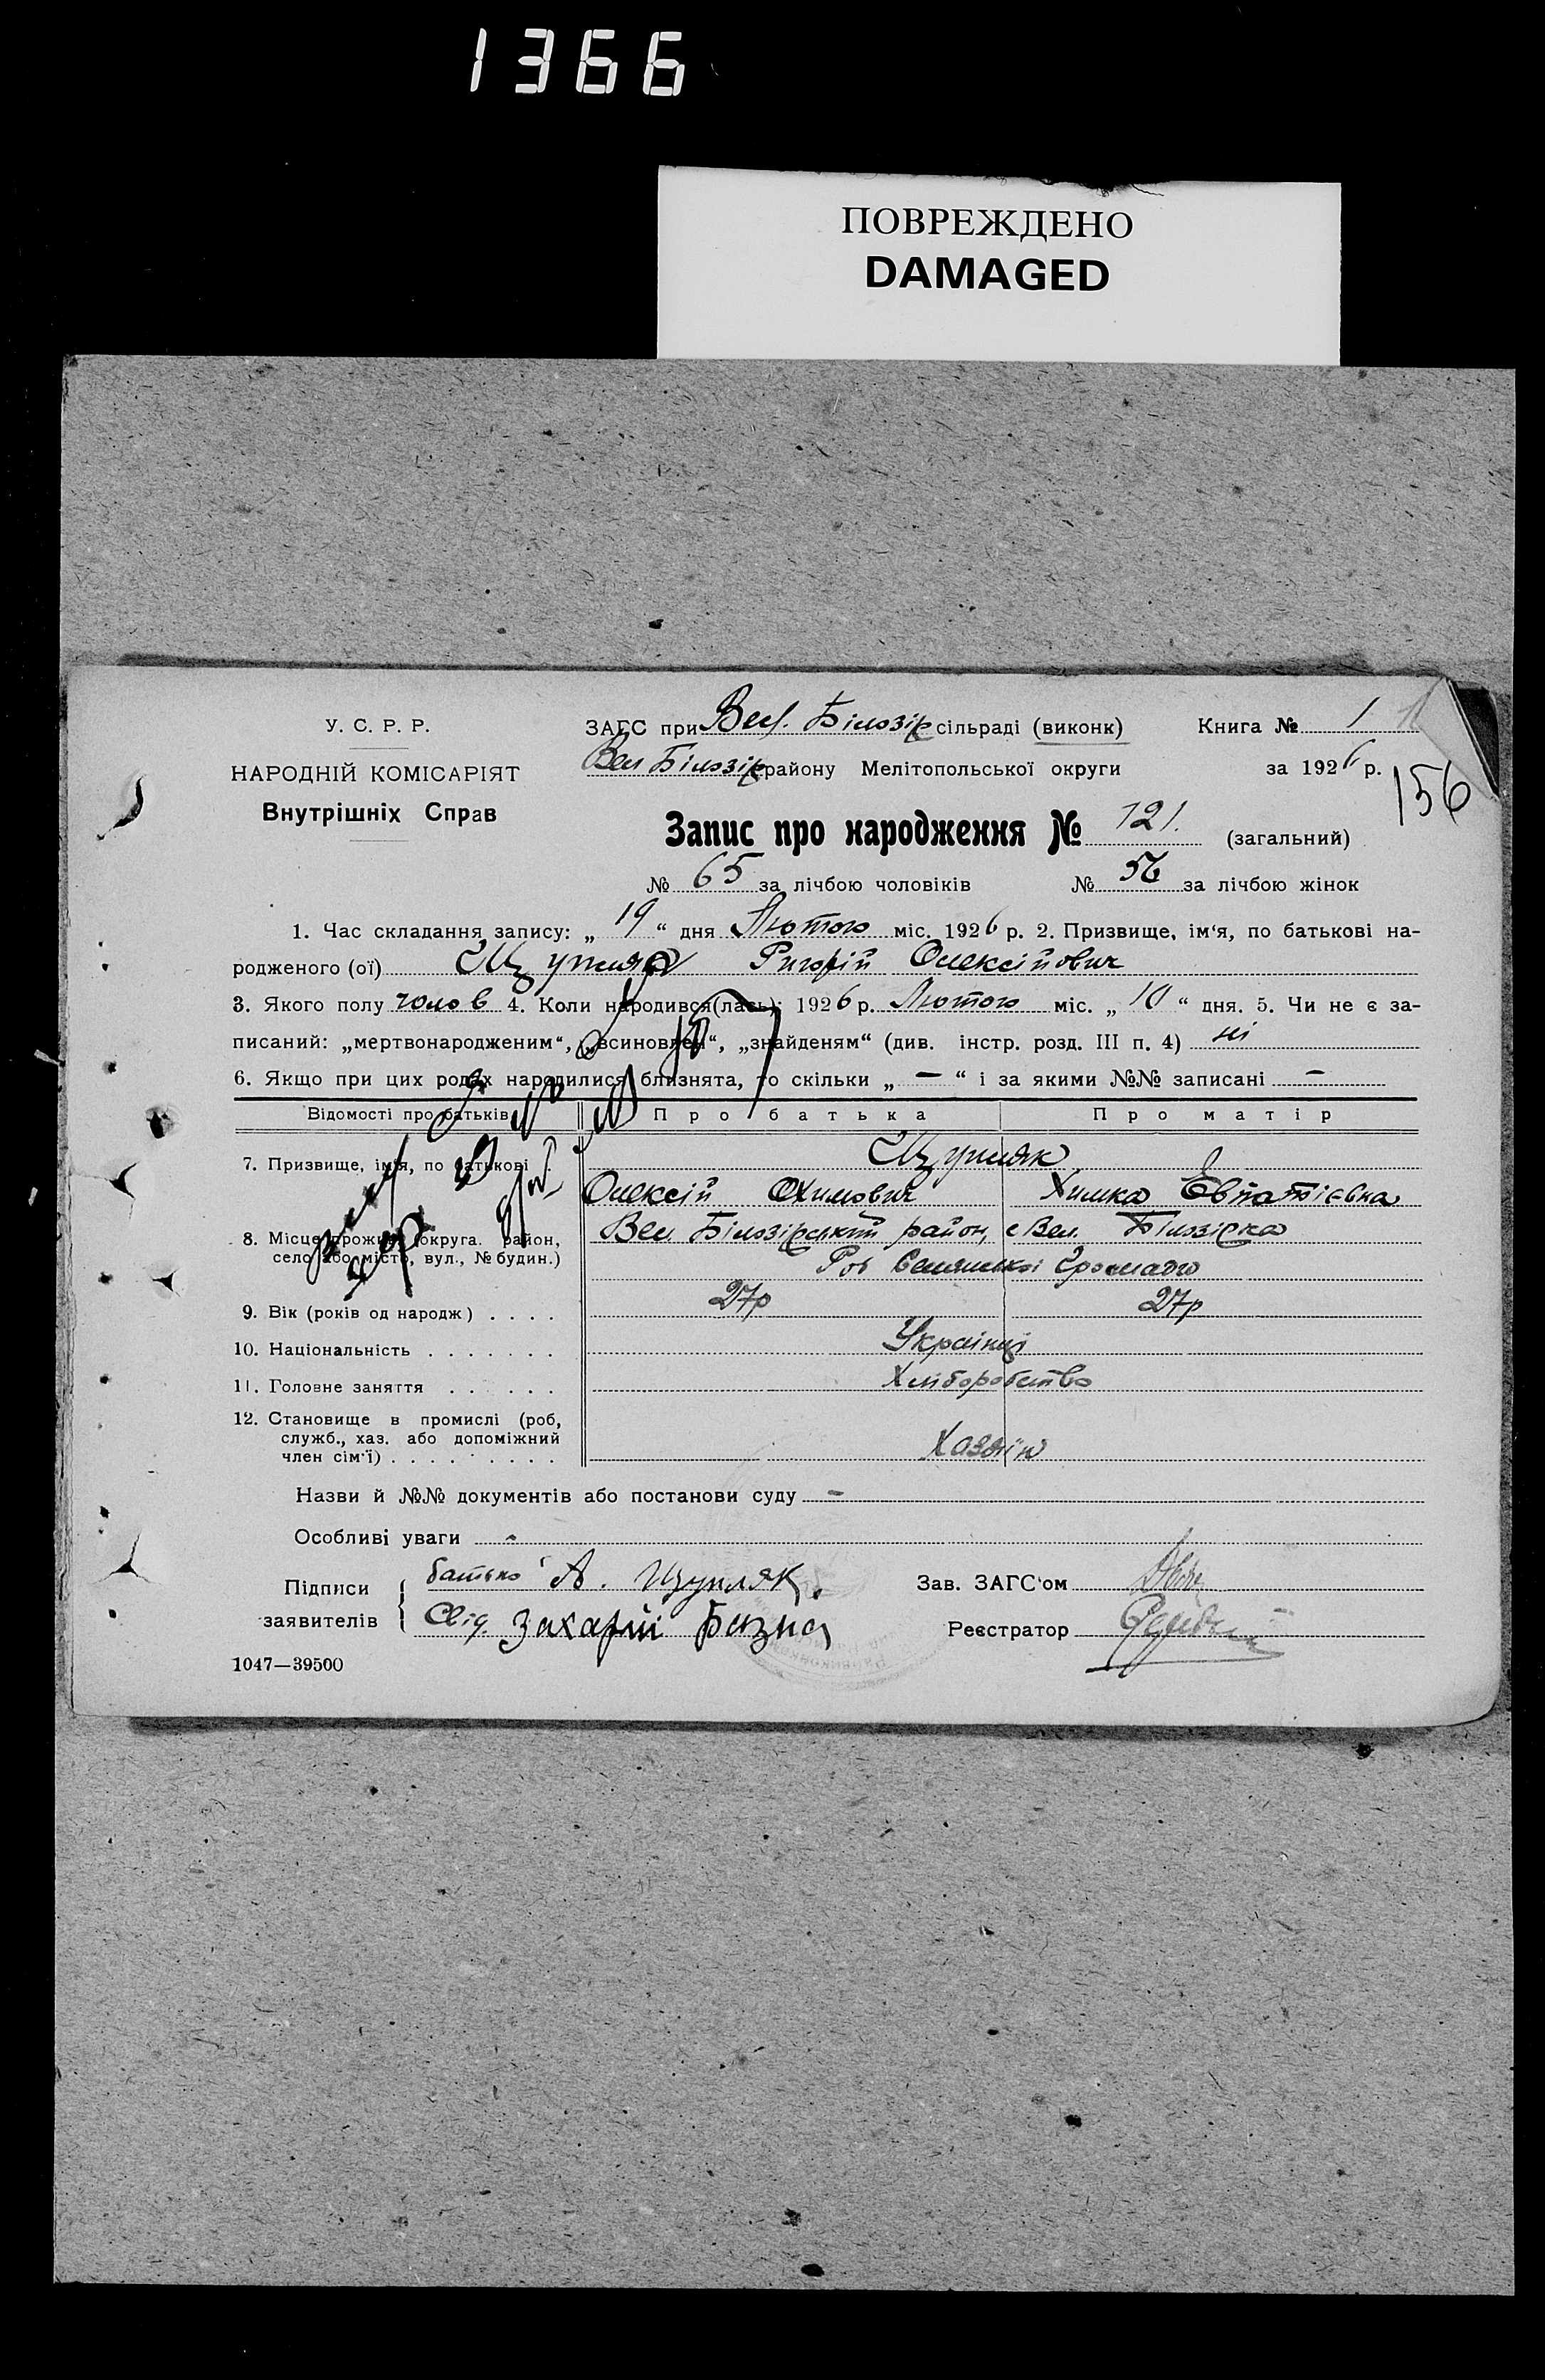 1366
ПОВРЕЖДЕНО
DAMAGED
У. С. Р. Р.
НАРОДНІЙ КОМІСАРІЯТ
Внутрішніх Справ
ЗАГС при Вел. Білозір сільраді (виконк)
Книга № 1
Вел Білозір району Мелітопольської округи
за 1926 р.
156
Запис про народження № 121. (загальний)
№ 65 за лічбою чоловіків № 56 за лічбою жінок
1. Час складання запису: „ 19 “ дня Лютого міс. 1926 р. 2. Призвище, ім‘я, по батькові на-
родженого (ої) Щупляк Григорій Олексійович
3. Якого полу чолов 4. Коли народився(лась): 1926 р. Лютого міс. „ 10 “ дня. 5. Чи не є за-
писаний: „мертвонародженим“, „всиновлен“, „знайденям“ (див. інстр. розд. III п. 4) ні
6. Якщо при цих родах народилися близнята, то скільки „ — “ і за якими №№ записані —
Відомості про батьків Про батька Про матір
7. Призвище, ім‘я, по батькові Щупляк
Олексій Юхимович Химка Евпатієвна
8. Місце прожив. (округа. район,
село або місто, вул., № будин.)
Вел. Білозірський район, с Вел. Білозірка
Громади
9. Вік (років од народж) . . . . 27р 27р
10. Національність . . . . . . . Українці
11. Головне заняття . . . . . . Хліборобство
12. Становище в промислі (роб,
служб., хаз. або допоміжний
член сім‘ї) . . . . . . . . . Хазяїн
Назви й №№ документів або постанови суду —
Особливі уваги -
Підписи
заявителів
батько А. Щупляк.
Свід. Захарій
Зав. ЗАГС‘ом
Реєстратор
1047—39500